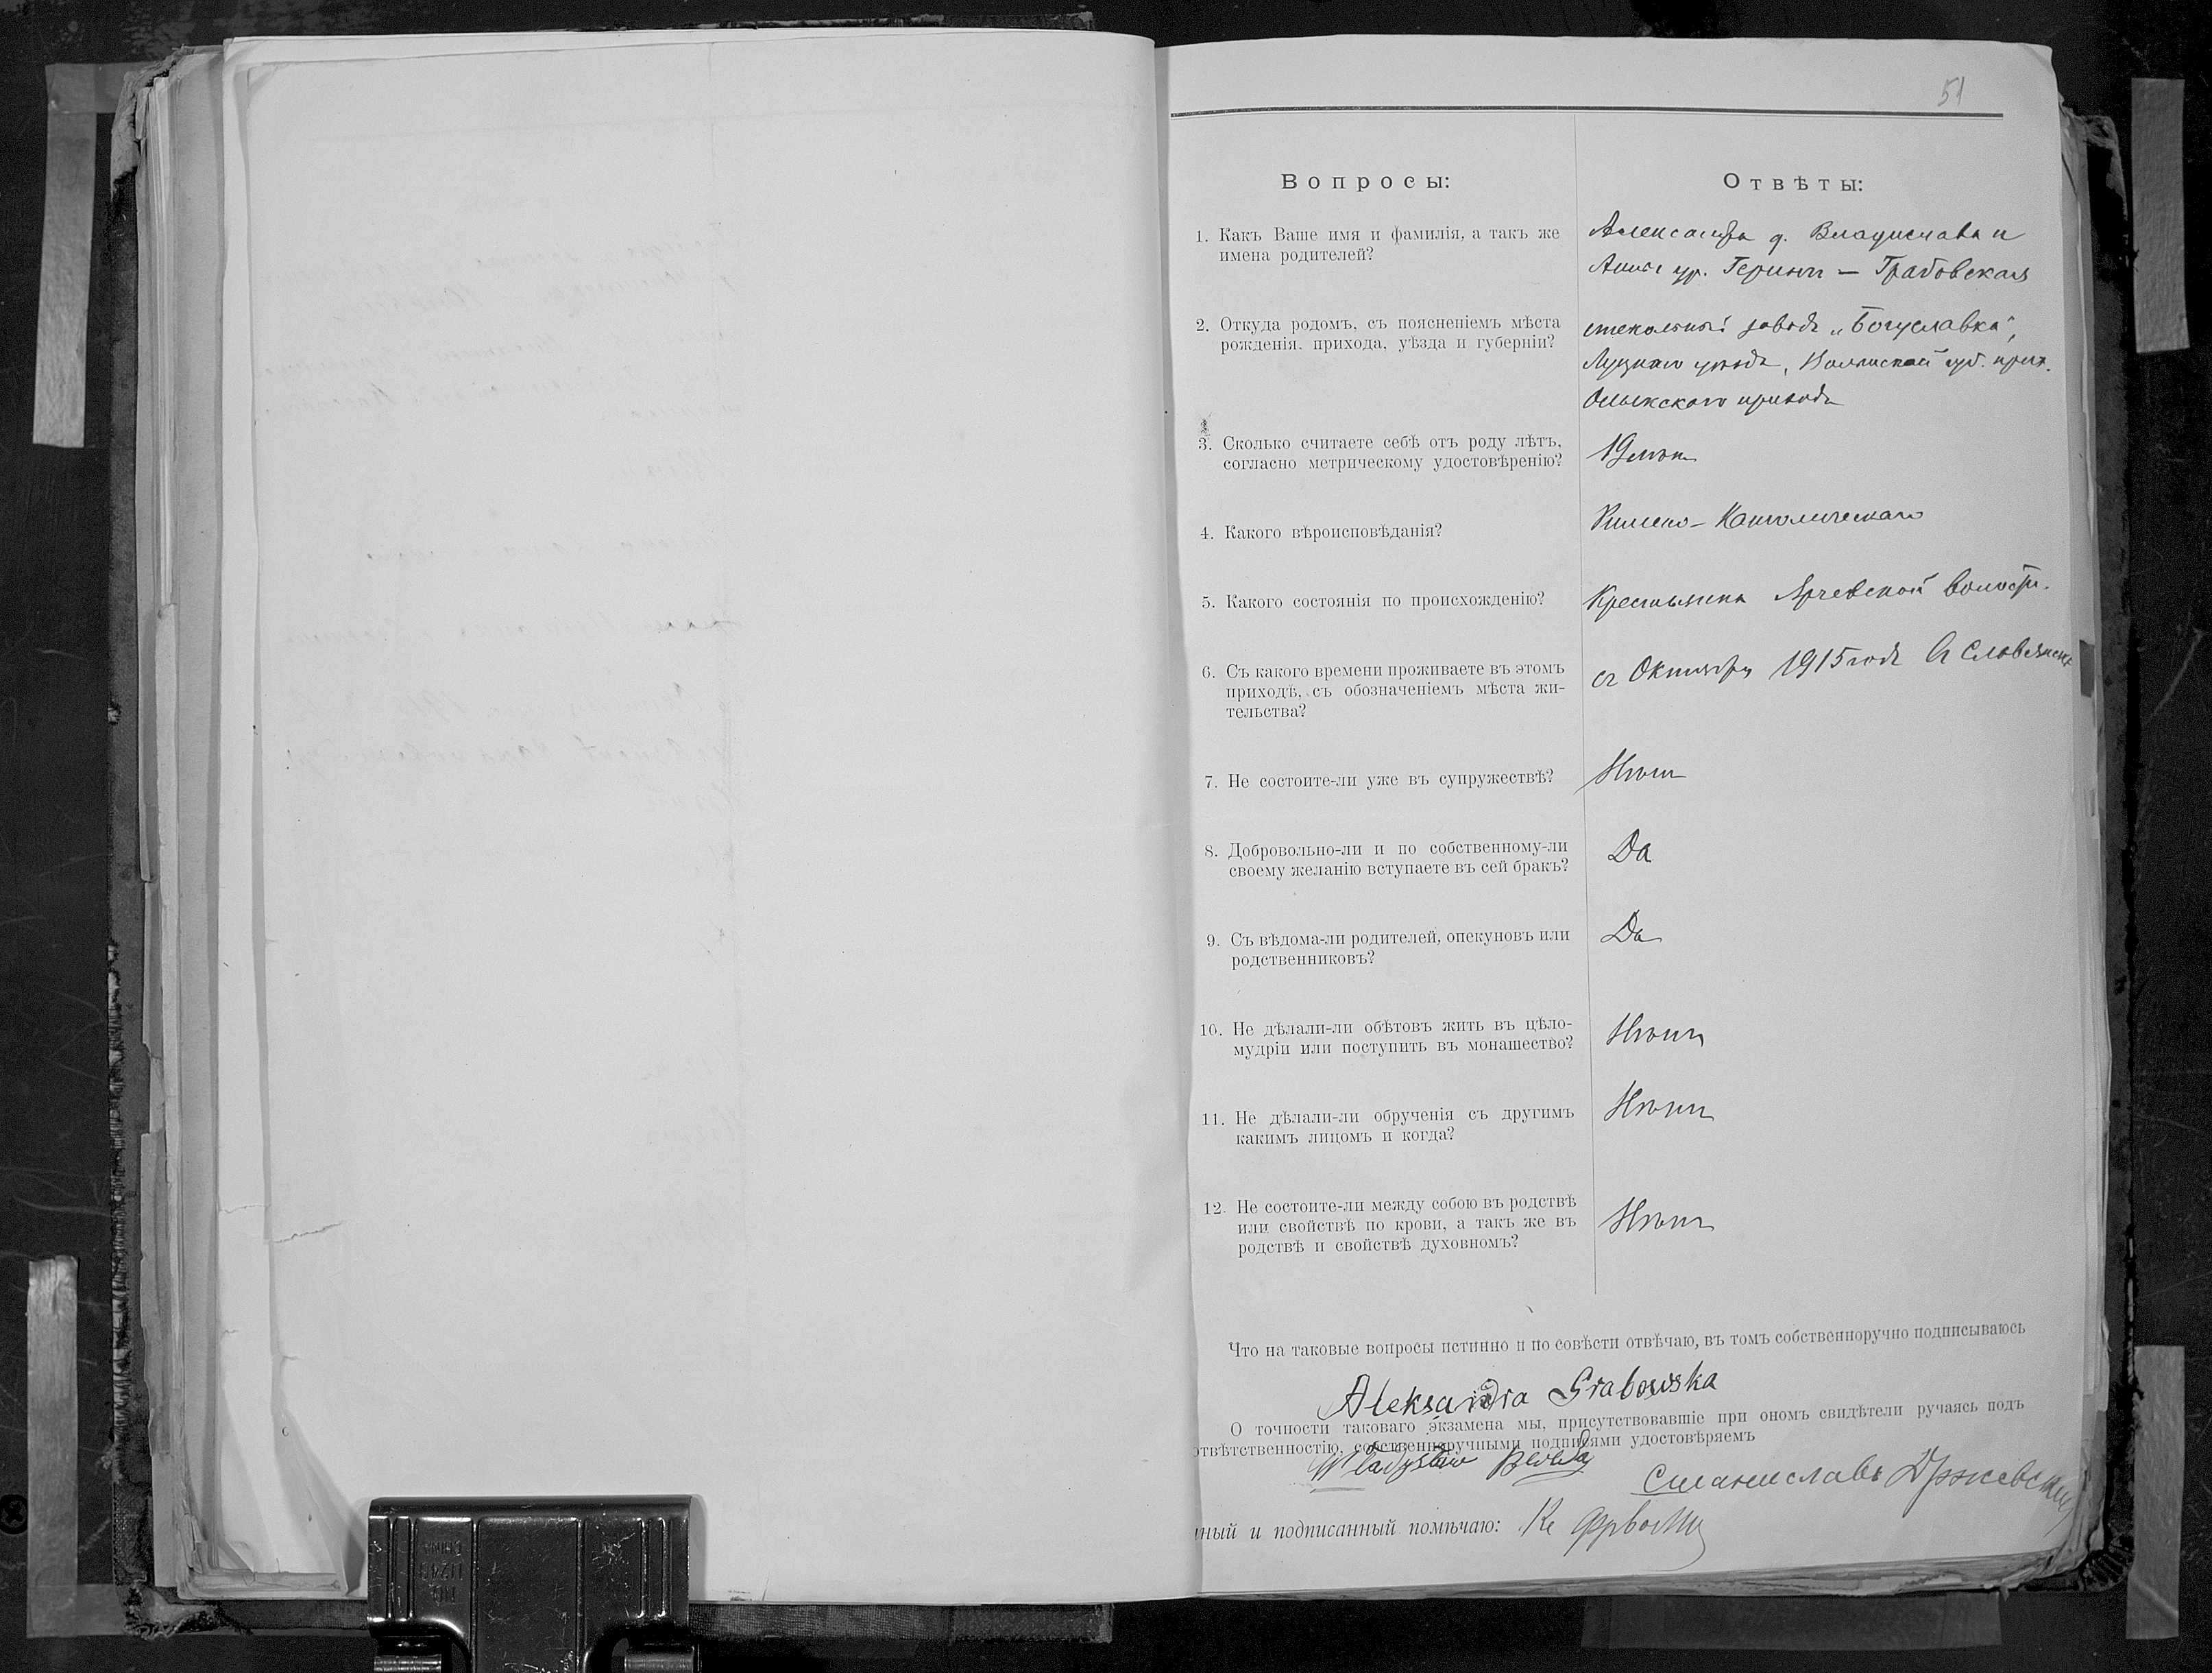 51
Вопросы:
Отвѣты:
1. Какъ Ваше имя и фамилія, а такъ же
имена родителей?
Александра д. Владислава и
Анны ур. Геринг — Грабовская
2. Откуда родомъ, съ поясненіемъ мѣста
рожденія, прихода, уѣзда и губерніи?
стекольный заводъ „Богуславка",
Луцкаго уѣзда, Волынской губ.
Олыкскаго прихода
3. Сколько считаете себѣ отъ роду лѣтъ,
согласно метрическому удостовѣренію?
19 лѣтъ
4. Какого вѣроисповѣданія?
Римско-Католическаго
5. Какого состоянія по происхожденію?
Крестьянка Ярчевской волости.
6. Съ какого времени проживаете въ этомъ
приходѣ, съ обозначеніемъ мѣста жи-
тельства?
съ Октября 1915 года Славянск
7. Не состоите-ли уже въ супружествѣ?
Нѣтъ
8. Добровольно-ли и по собственному-ли
своему желанію вступаете въ сей бракъ?
Да
9. Съ вѣдома-ли родителей, опекуновъ или
родственниковъ?
Да
10. Не дѣлали-ли обѣтовъ жить въ цѣло-
мудріи или поступить въ монашество?
Нѣтъ
11. Не дѣлали-ли обрученія съ другимъ
какимъ лицомъ и когда?
Нѣтъ
12. Не состоите-ли между собою въ родствѣ
или свойствѣ по крови, а такъ же въ
родствѣ и свойствѣ духовномъ?
Нѣтъ
Что на таковые вопросы истинно и по совѣсти отвѣчаю, въ томъ собственноручно подписываюсь
Aleksandra Grabowska
О точности таковаго экзамена мы, присутствовавшіе при ономъ свидѣтели ручаясь подъ
отвѣтственностію, собственноручными подписями удостовѣряемъ
Władysław
Станиславъ
ный и подписанный помѣчаю: